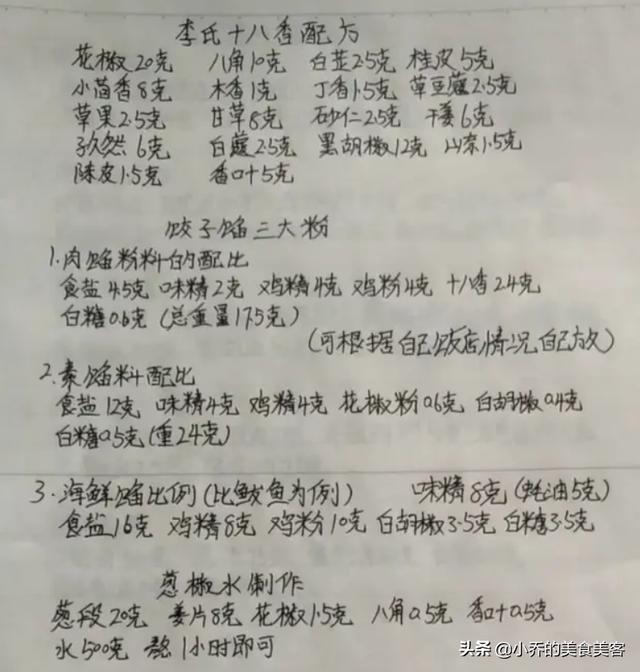 李氏十八香配方
花椒20克 八角10克 白芷2.5克 桂皮5克
小茴香8克 木香1克 丁香1.5克 草豆蔻2.5克
草果2.5克 甘草8克 砂仁2.5克 干姜6克
孜然6克 白蔻2.5克 黑胡椒12克 山奈1.5克
陈皮1.5克 香叶5克
饺子馅三大粉
1.肉馅粉料的配比
食盐4.5克 味精2克 鸡精4克 鸡粉4克 十八香2.4克
白糖0.6克 (总重量17.5克)
(可根据自己饭店情况自己放)
2.素馅料配比
食盐12克 味精4克 鸡精4克 花椒粉0.6克 白胡椒0.4克
白糖0.5克(重24克)
3.海鲜馅比例(比鲅鱼为例) 味精8克(蚝油5克)
食盐16克 鸡精8克 鸡粉10克 白胡椒3.5克 白糖3.5克
葱椒水制作
葱段20克 姜片8克 花椒1.5克 八角0.5克 香叶0.5克
水500克 熬1小时即可
头条 @小乔的美食美客